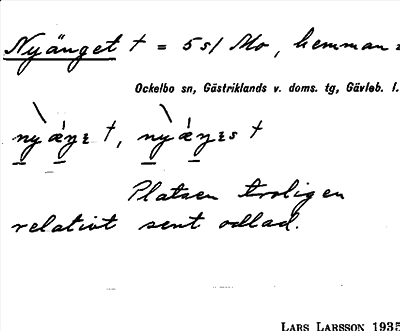 Nyänget † = 5 s/ Mo, hemman =
Ockelbo sn, Gästriklands v. doms. tg, Gävleb. l.
Platsen troligen
relativt sent odlad.
LARS LARSSON 1935